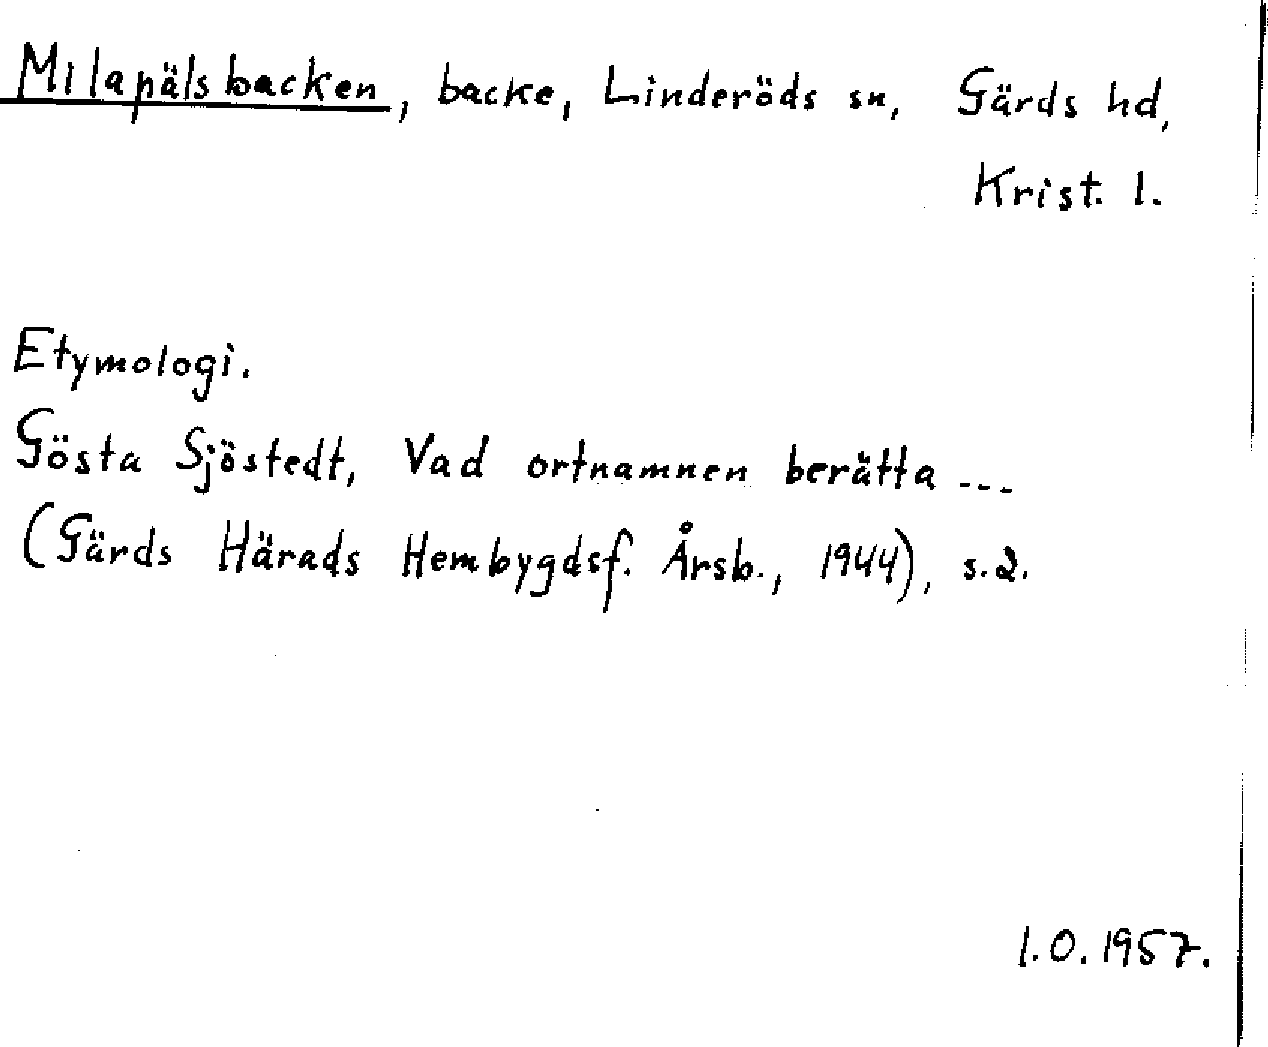 Milapälsbacken, backe, Linderöds sn, Gärds hd,
Krist. l.
Etymologi.
Gösta Sjöstedt, Vad ortnamnen berätta ---
(Gärds Härads Hembygdsf. Årsb., 1944), s. 2.
l. O. 1957.